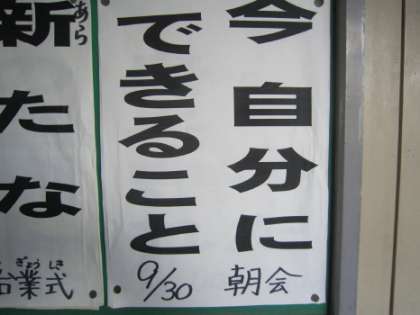 今 自分に
できること
9/30 朝会
新たな
あら
業式
ぎょうしき